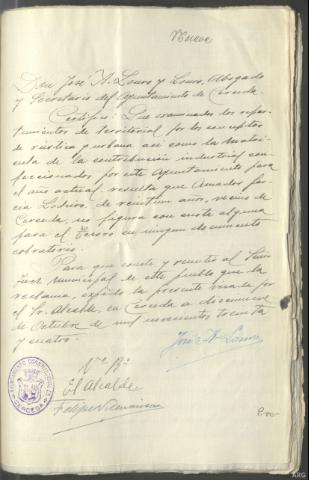 Nueve
Don José A. Louro y Louro, Abogado
y Secretario del Ayuntamiento de Cerceda.
Certifico: Que examinados los repar-
timientos de Territorial por los conceptos
de rústica y urbana así como la matrí-
cula de la contribución industrial con-
feccionados por este Ayuntamiento para
el año actual, resulta que Amador Gar-
cía Liduro, de veintiun años, vecino de
Cerceda, no figura con cuota alguna
para el Tesoro en ningún documento
cobratorio.
Para que conste y remitir al Señor
Juez Municipal de este pueblo que la
reclama, expido la presente visada por
el Sr. Alcalde, en Cerceda a diecinueve
de Octubre de mil novecientos treinta
y cuatro.
José A. Louro
Vº Bº
El Alcalde
Felipe
CERCEDA
ARG